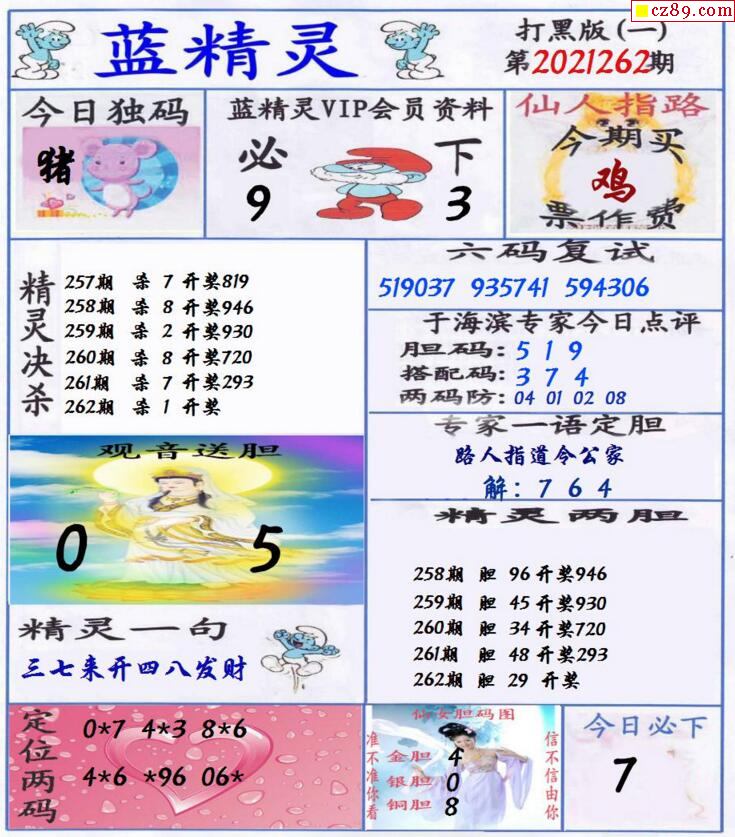 cz89.com
蓝精灵
打黑版(一)
第2021262期
今日独码
猪
蓝精灵VIP会员资料
必 下
9 3
仙人指路
今期买
鸡
票作费
精灵决杀
257期 杀 7 开奖819
258期 杀 8 开奖946
259期 杀 2 开奖930
260期 杀 8 开奖720
261期 杀 7 开奖293
262期 杀 1 开奖
六码复试
519037 935741 594306
于海滨专家今日点评
胆码: 5 1 9
搭配码: 3 7 4
两码防: 04 01 02 08
专家一语定胆
路人指道令公家
解: 7 6 4
观音送胆
0 5
精灵两胆
258期 胆 96 开奖946
259期 胆 45 开奖930
260期 胆 34 开奖720
261期 胆 48 开奖293
262期 胆 29 开奖
精灵一句
三七来开四八发财
定位两码
0*7 4*3 8*6
4*6 *96 06*
仙女胆码图
准不准你看
金胆 4
银胆 0
铜胆 8
信不信由你
今日必下
7